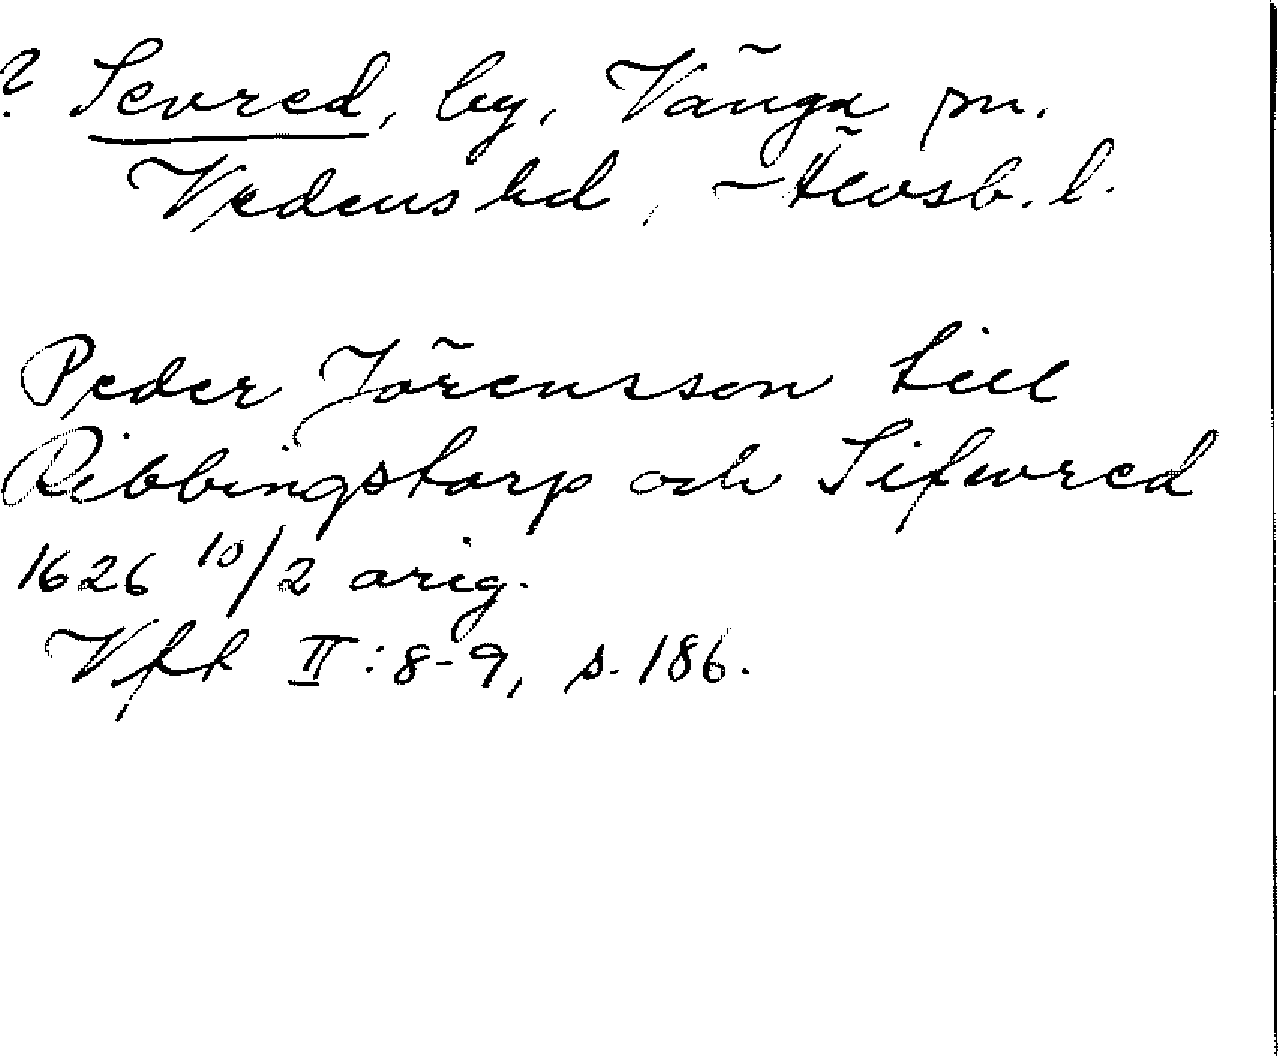 ? Sevred, by, Vånga sn.
Vedens hd, Älvsb. l.
Peder Jörensson till
Ribbingstorp och Sifwred
1626 10/2 orig.
Vfft II:8-9, s. 186.